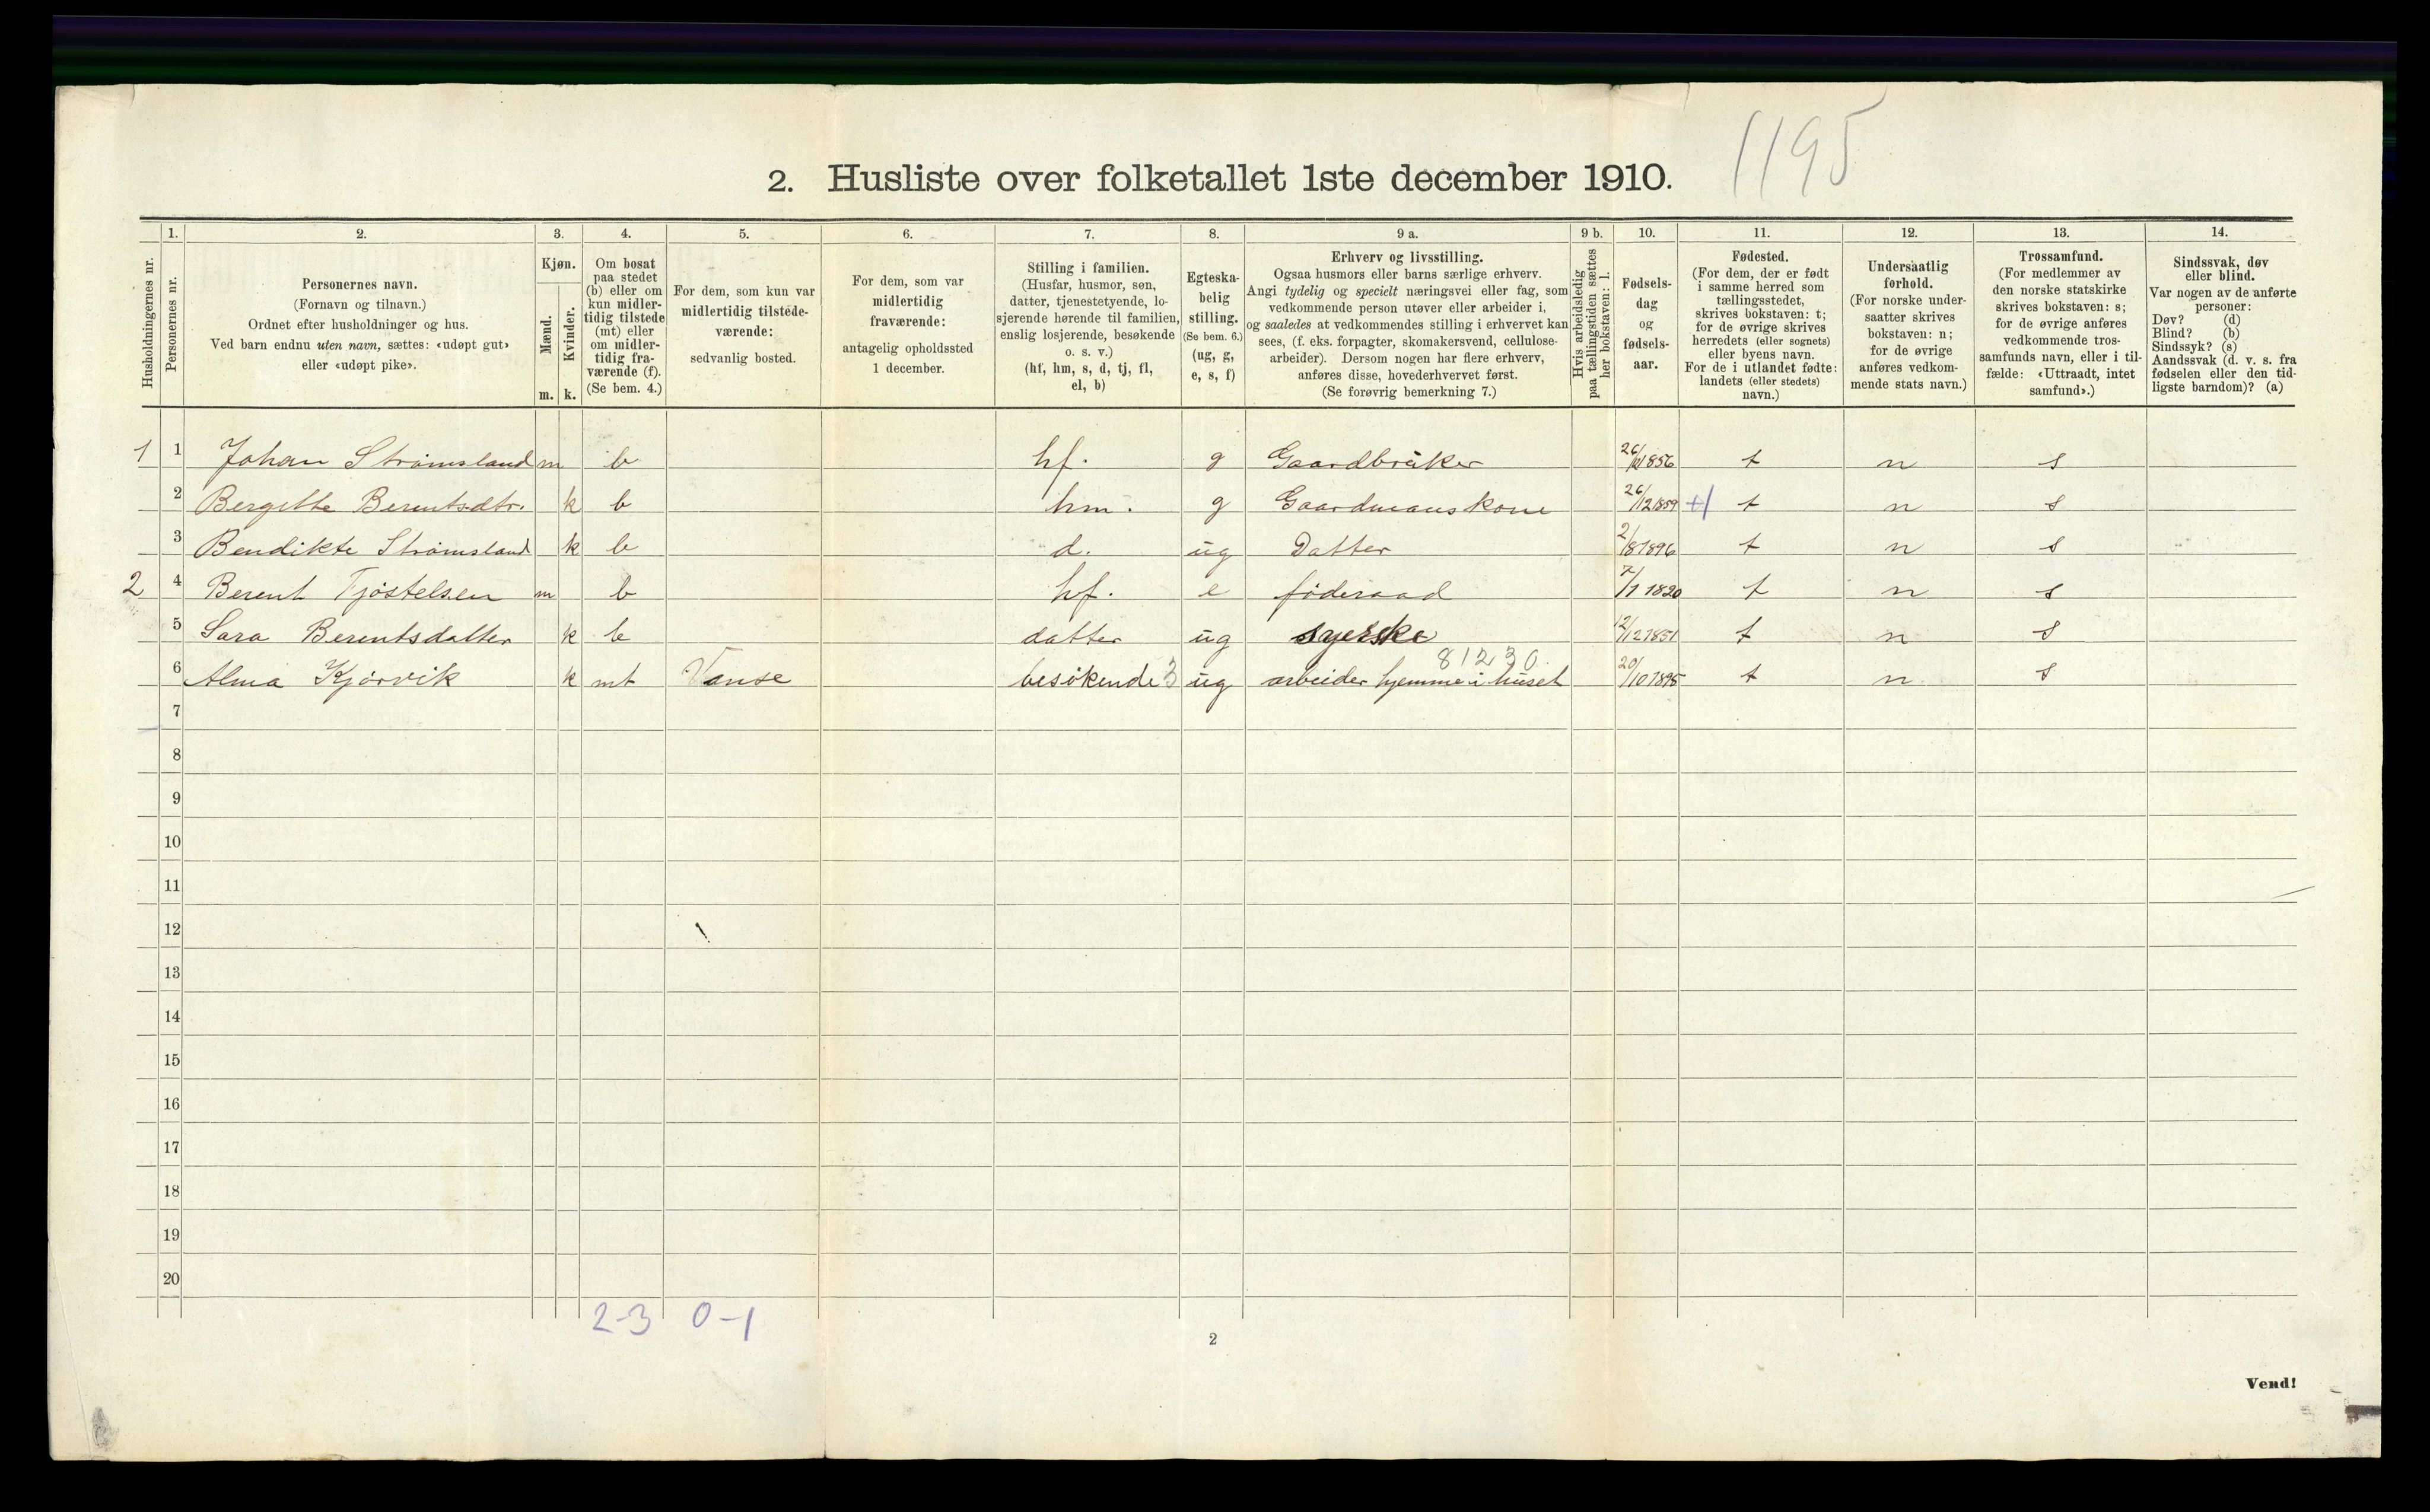 1195
2. Husliste over folketallet 1ste december 1910.
Husholdningernes nr.
1. Personernes nr.
2. Personernes navn.
(Fornavn og tilnavn.)
Ordnet efter husholdninger og hus.
Ved barn endnu uten navn, sættes: «udøpt gut»
eller «udøpt pike».
3. Kjøn.
Mænd. Kvinder.
m. k.
4. Om bosat
paa stedet
(b) eller om
kun midler-
tidig tilstede
(mt) eller
om midler-
tidig fra-
værende (f).
(Se bem. 4.)
5. For dem, som kun var
midlertidig tilstede-
værende:
sedvanlig bosted.
6. For dem, som var
midlertidig
fraværende:
antagelig opholdssted
1 december.
7. Stilling i familien.
(Husfar, husmor, søn,
datter, tjenestetyende, lo-
sjerende hørende til familien,
enslig losjerende, besøkende
o. s. v.)
(hf, hm, s, d, tj, fl,
el, b)
8. Egteska-
belig
stilling.
(Se bem. 6.)
(ug, g,
e, s, f)
9 a. Erhverv og livsstilling.
Ogsaa husmors eller barns særlige erhverv.
Angi tydelig og specielt næringsvei eller fag, som
vedkommende person utøver eller arbeider i,
og saaledes at vedkommendes stilling i erhvervet kan
sees, (f. eks. forpagter, skomakersvend, cellulose-
arbeider). Dersom nogen har flere erhverv,
anføres disse, hovederhvervet først.
(Se forøvrig bemerkning 7.)
9 b. Hvis arbeidsledig
paa tællingstiden sættes
her bokstaven: l.
10. Fødsels-
dag
og
fødsels-
aar.
11. Fødested.
(For dem, der er født
i samme herred som
tællingsstedet,
skrives bokstaven: t;
for de øvrige skrives
herredets (eller sognets)
eller byens navn.
For de i utlandet fødte:
landets (eller stedets)
navn.)
12. Undersaatlig
forhold.
(For norske under-
saatter skrives
bokstaven: n;
for de øvrige
anføres vedkom-
mende stats navn.)
13. Trossamfund.
(For medlemmer av
den norske statskirke
skrives bokstaven: s;
for de øvrige anføres
vedkommende tros-
samfunds navn, eller i til-
fælde: «Uttraadt, intet
samfund».)
14. Sindssvak, døv
eller blind.
Var nogen av de anførte
personer:
Døv? (d)
Blind? (b)
Sindssyk? (s)
Aandssvak (d. v. s. fra
fødselen eller den tid-
ligste barndom)? (a)
1 1 Johan Strømsland m b hf. g Gaardbruker 1856 t n s
2 Bergitte Berentsdtr. k b hm. g Gaardmanskone 26/12 1859 t n s
3 Bendikte Strømsland k b d. ug Datter 2/8 1896 t n s
2 4 Berent Tjøstelsen m b hf. e føderaad 7/1 1820 t n s
5 Sara Berentsdatter k b datter ug syerske 12/12 1851 t n s
81230.
6 Alma Kjørvik k mt Vanse besøkende 3 ug arbeider hjemme i huset 20/10 1895 t n s
7
8
9
10
11
12
13
14
15
16
17
18
19
20
2-3 0-1
2
Vend!